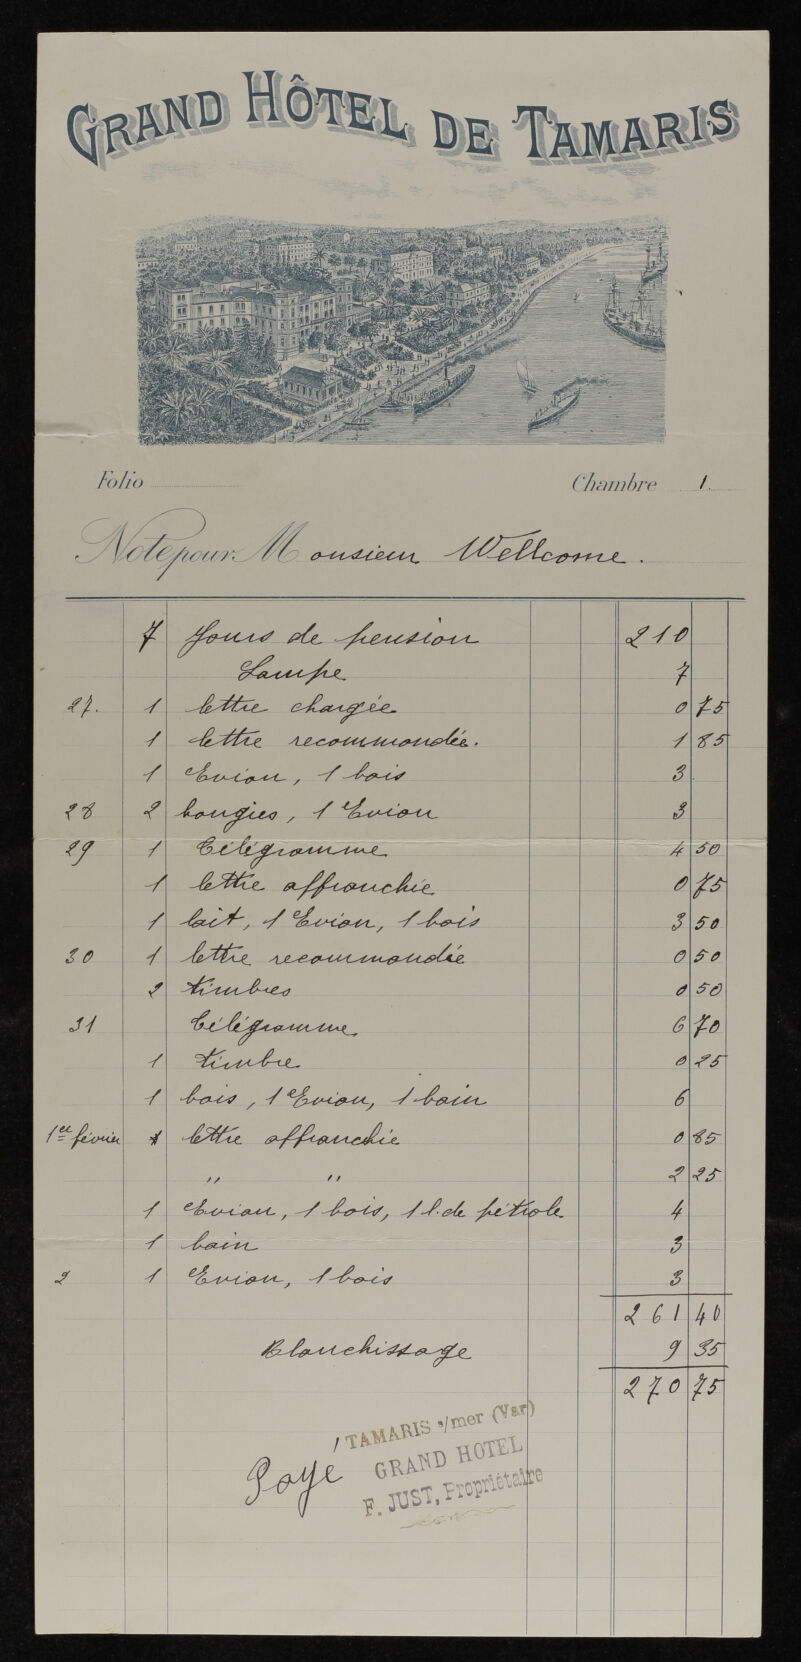 GRAND HÔTEL DE TAMARIS
Folio Chambre 1.
Note pour Monsieur Wellcome.
7 Jours de pension 210
Lampe 7
27. 1 lettre chargée 0 75
1 lettre recommandée. 1 85
1 Evian, 1 bois 3
28 2 bougies, 1 Evian 3
29 1 Télégramme 4 50
1 lettre affranchie 0 75
1 lait, 1 Evian, 1 bois 3 50
30 1 lettre recommandée 0 50
2 timbres 0 50
31 Télégramme 6 70
1 timbre 0 25
1 bois, 1 Evian, 1 bain 6
1er février 1 lettre affranchie 0 85
" " 2 25
1 Evian, 1 bois, 1 l. de pétrole 4
1 bain 3
2 1 Evian, 1 bois 3
261 40
Blanchissage 9 35
270 75
TAMARIS s/mer (Var)
Payé GRAND HOTEL
F. JUST, Propriétaire